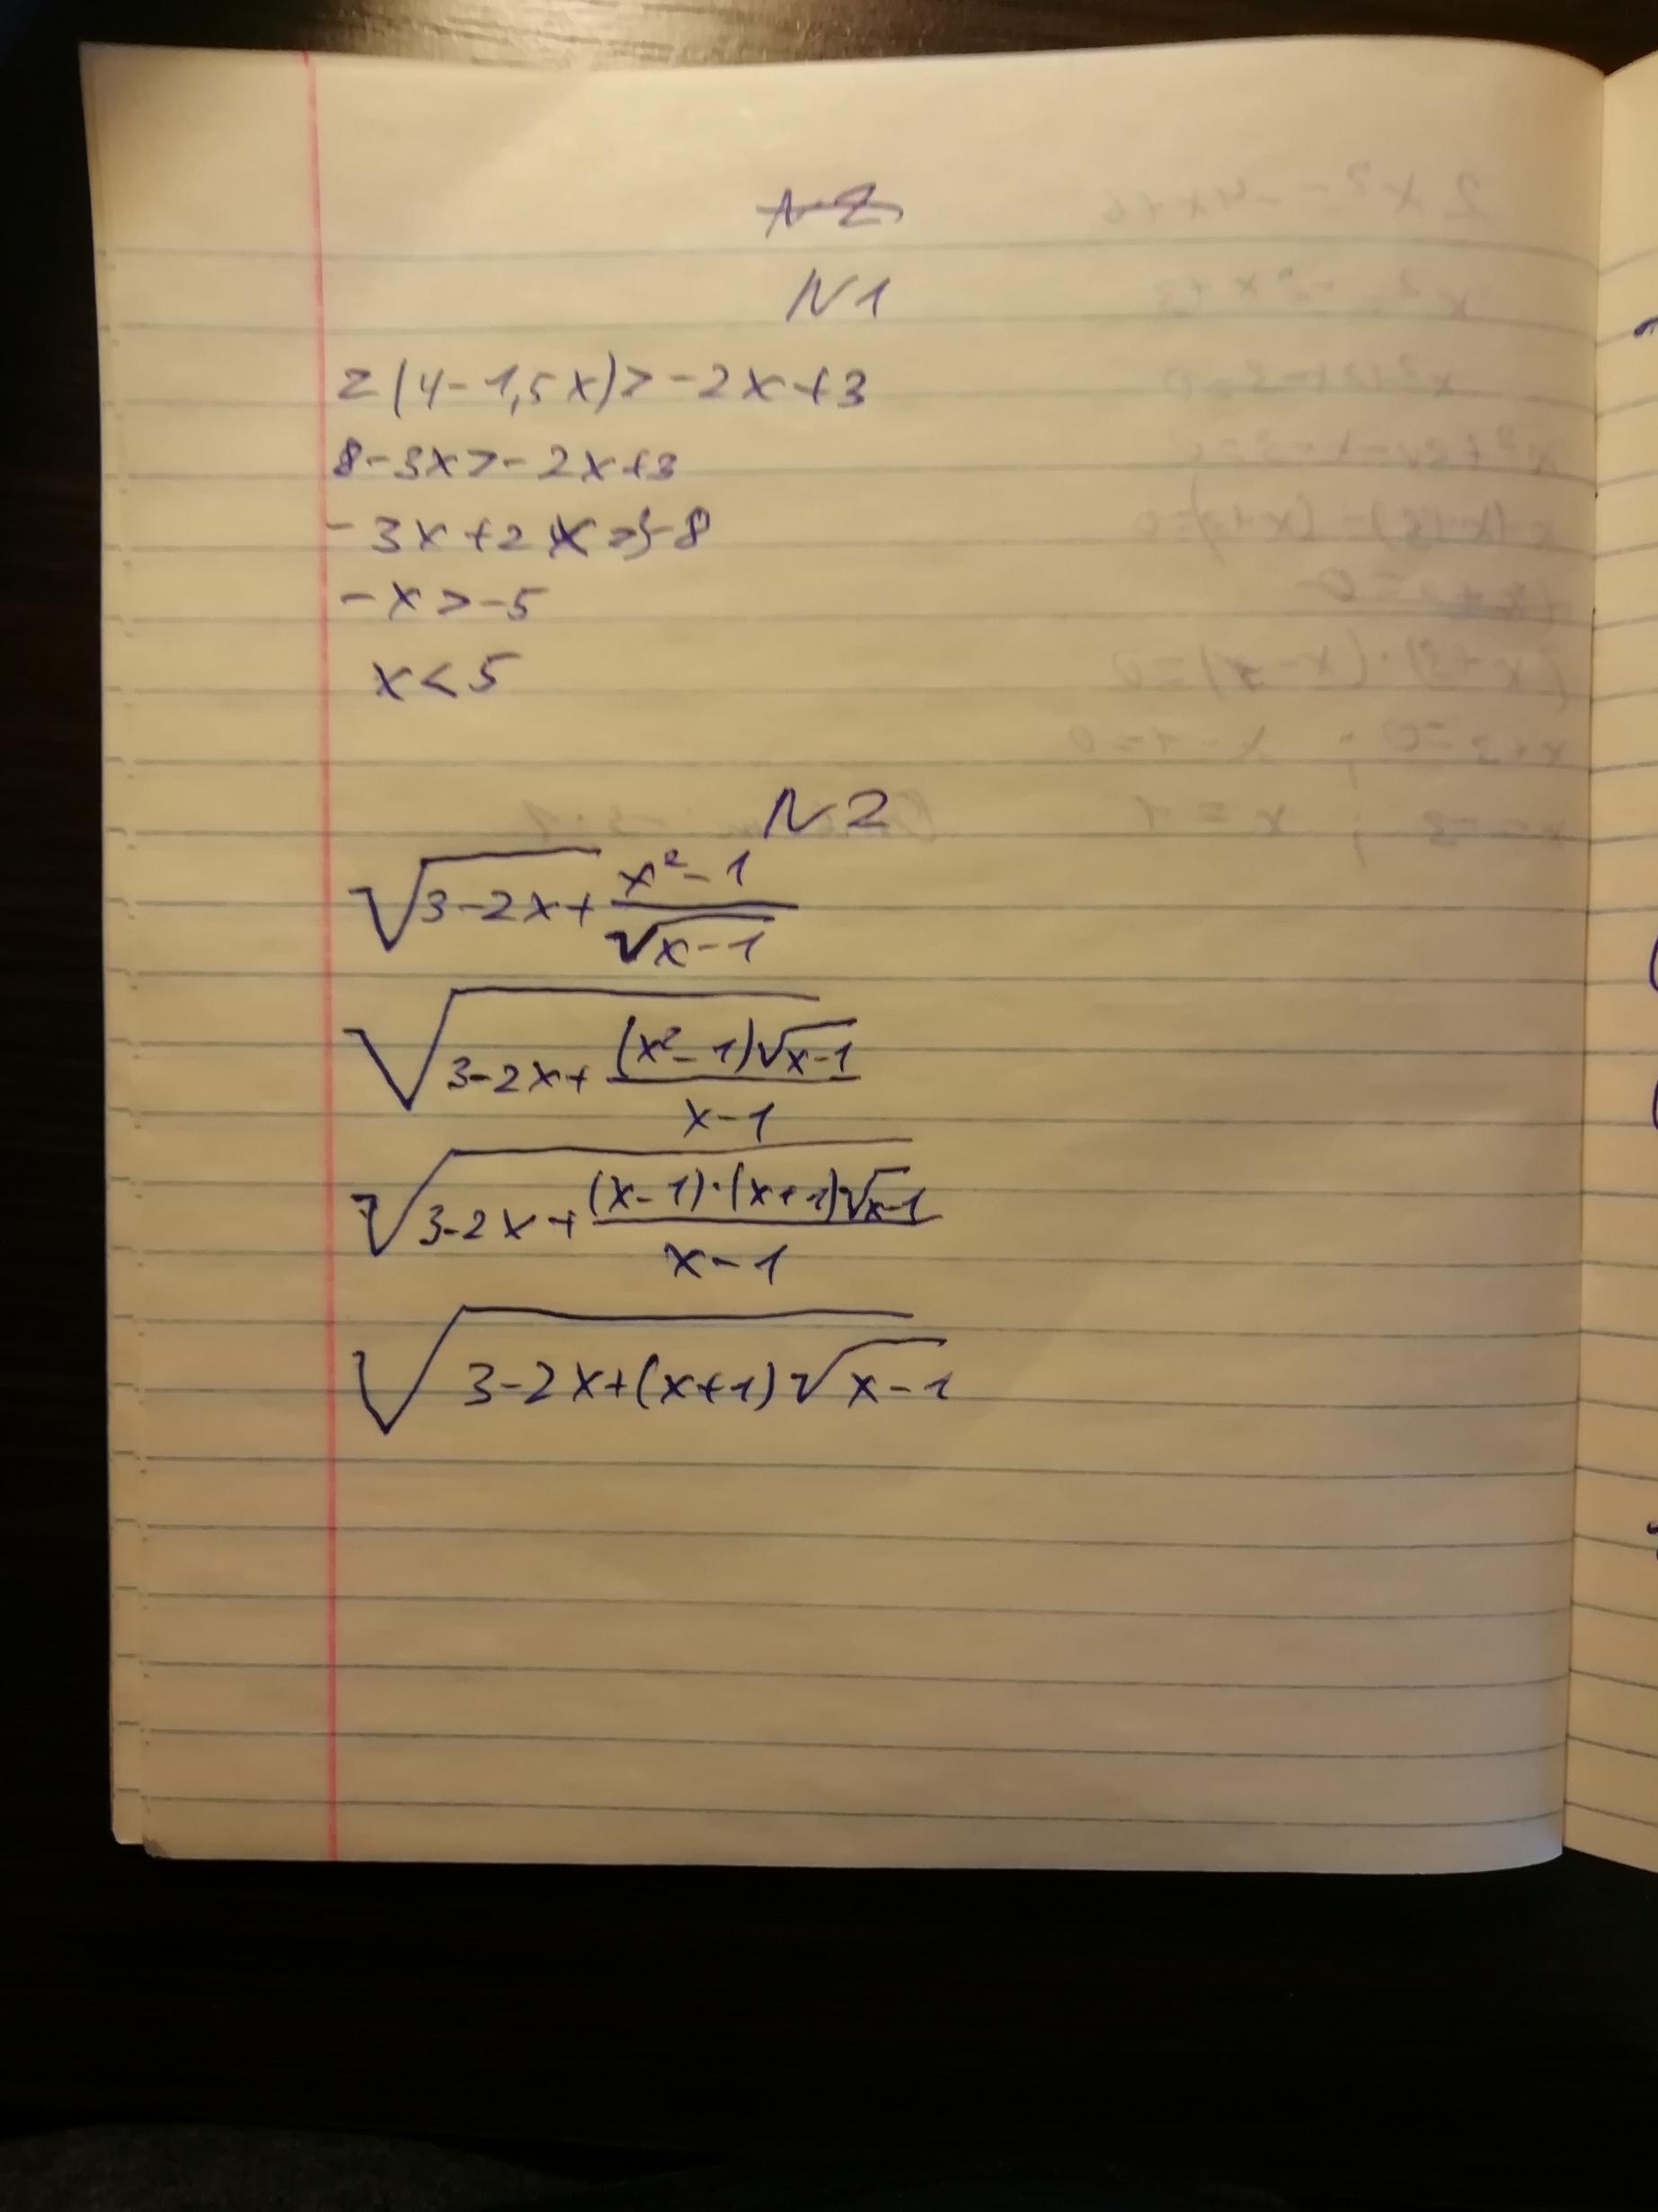 N1
2(4-1,5x)>-2x+3
8-3x>-2x+3
-3x+2x>3-8
-x>-5
x<5
N2
√(3-2x+(x²-1)/(√(x-1)))
√(3-2x+((x²-1)√(x-1))/(x-1))
√(3-2x+((x-1)·(x+1)√(x-1))/(x-1))
√(3-2x+(x+1)√(x-1))